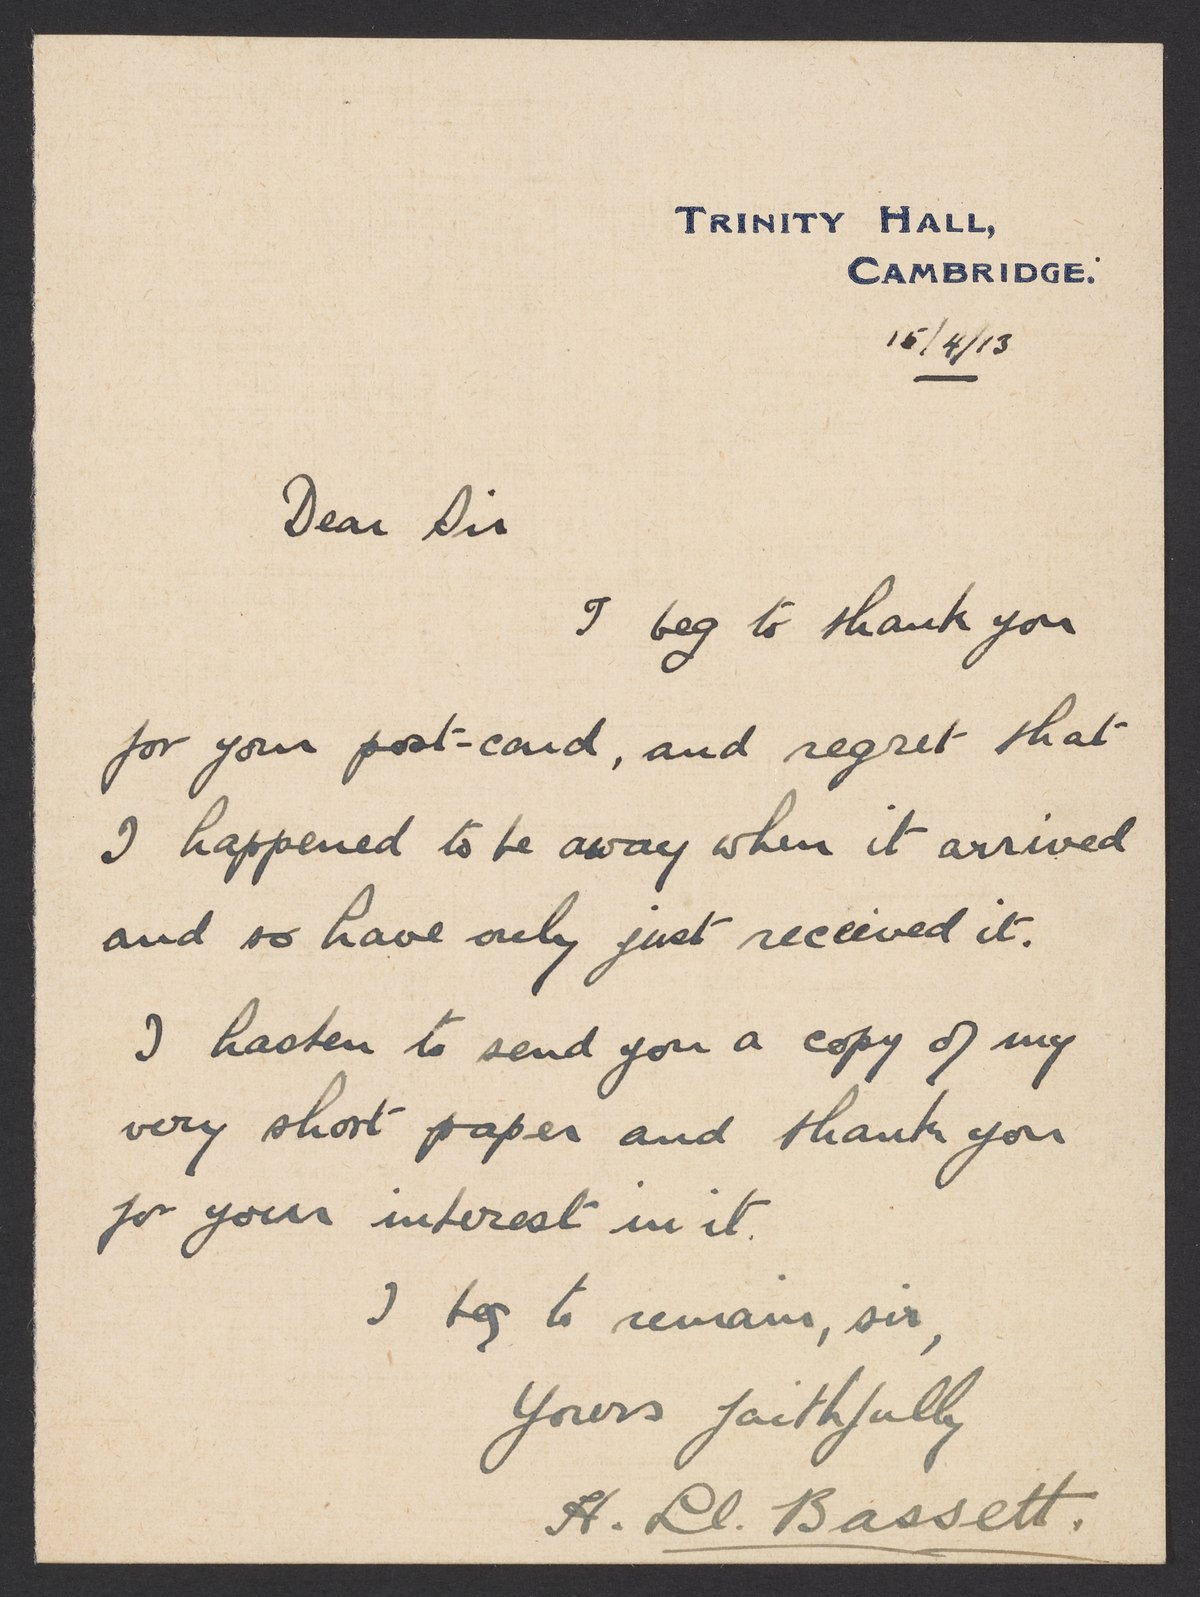 TRINITY HALL,
CAMBRIDGE.
15/4/13
Dear Sir
I beg to thank you
for your post-card, and regret that
I happened to be away when it arrived
and so have only just received it.
I hasten to send you a copy of my
very short paper and thank you
for your interest in it.
I beg to remain, sir,
Yours faithfully
H. Ll. Bassett.